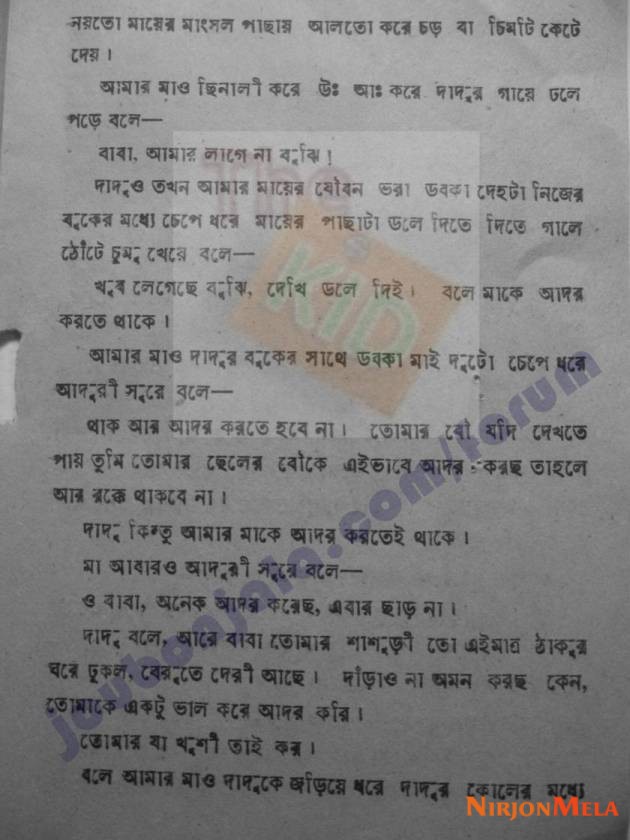 নয়তো মায়ের মাংসল পাছায় আলতো করে চড় বা চিমটি কেটে
দেয়।
আমার মাও ছিনালী করে উঃ আঃ করে দাদুর গায়ে ঢলে
পড়ে বলে—
বাবা, আমার লাগে না বুঝি!
দাদুও তখন আমার মায়ের যৌবন ভরা ডবকা দেহটা নিজের
বুকের মধ্যে চেপে ধরে মায়ের পাছাটা ডলে দিতে দিতে গালে
ঠোঁটে চুমু খেয়ে বলে—
খুব লেগেছে বুঝি, দেখি ডলে দিই। বলে মাকে আদর
করতে থাকে।
আমার মাও দাদুর বুকের সাথে ডবকা মাই দুটো চেপে ধরে
আদুরী সুরে বলে—
থাক আর আদর করতে হবে না। তোমার বৌ যদি দেখতে
পায় তুমি তোমার ছেলের বৌকে এইভাবে আদর করছ তাহলে
আর রক্ষে থাকবে না।
দাদু কিন্তু আমার মাকে আদর করতেই থাকে।
মা আবারও আদুরী সুরে বলে—
ও বাবা, অনেক আদর করেছ, এবার ছাড় না।
দাদু বলে, আরে বাবা তোমার শাশুড়ী তো এইমাত্র ঠাকুর
ঘরে ঢুকল, বেরুতে দেরী আছে। দাঁড়াও না অমন করছ কেন,
তোমাকে একটু ভাল করে আদর করি।
তোমার যা খুশী তাই কর।
বলে আমার মাও দাদুকে জড়িয়ে ধরে দাদুর কোলের মধ্যে
The KID
joubonjala.com/forum
NIRJONMELA